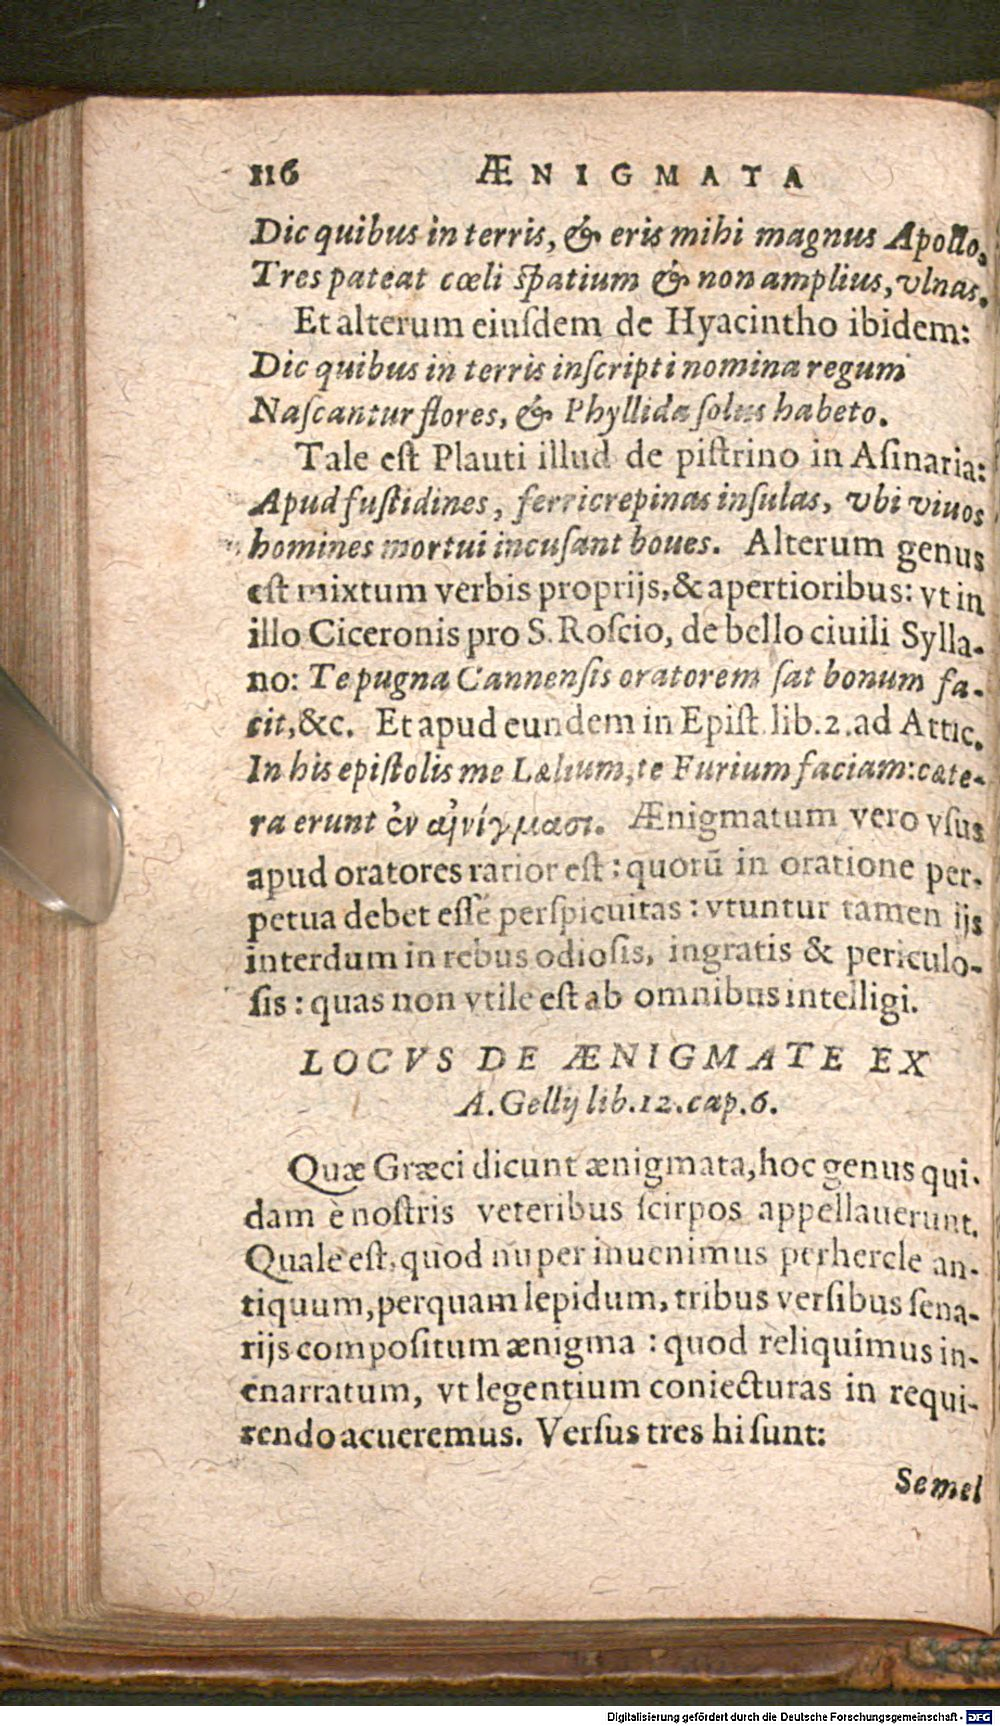 116 ÆNIGMATA
Dic quibus in terris, & eris mihi magnus Apollo,
Tres pateat cœli spatium & non amplius, vlnas.
Et alterum eiuſdem de Hyacintho ibidem:
Dic quibus in terris inſcripti nomina regum
Naſcantur flores, & Phyllida ſolus habeto.
Tale eſt Plauti illud de piſtrino in Aſinaria:
Apud fuſtidines, ferricrepinas inſulas, vbi viuos
homines mortui incuſant boues. Alterum genus
eſt mixtum verbis proprijs, & apertioribus: vt in
illo Ciceronis pro S. Roſcio, de bello ciuili Sylla-
no: Te pugna Cannenſis oratorem ſat bonum fa-
cit, &c. Et apud eundem in Epiſt. lib. 2. ad Attic.
In his epiſtolis me Lælium, te Furium faciam: cæte-
ra erunt ἐν αἰνίγμασι. Ænigmatum vero vſus
apud oratores rarior eſt: quorū in oratione per-
petua debet eſſe perſpicuitas: vtuntur tamen ijs
interdum in rebus odioſis, ingratis & periculo-
ſis: quas non vtile eſt ab omnibus intelligi.
LOCVS DE ÆNIGMATE EX
A. Gellij lib. 12. cap. 6.
Quæ Græci dicunt ænigmata, hoc genus qui-
dam è noſtris veteribus ſcirpos appellauerunt.
Quale eſt, quod nuper inuenimus perhercle an-
tiquum, perquam lepidum, tribus verſibus ſena-
rijs compoſitum ænigma: quod reliquimus in-
enarratum, vt legentium coniecturas in requi-
rendo acueremus. Verſus tres hi ſunt:
Semel
Digitalisierung gefördert durch die Deutsche Forschungsgemeinschaft - DFG